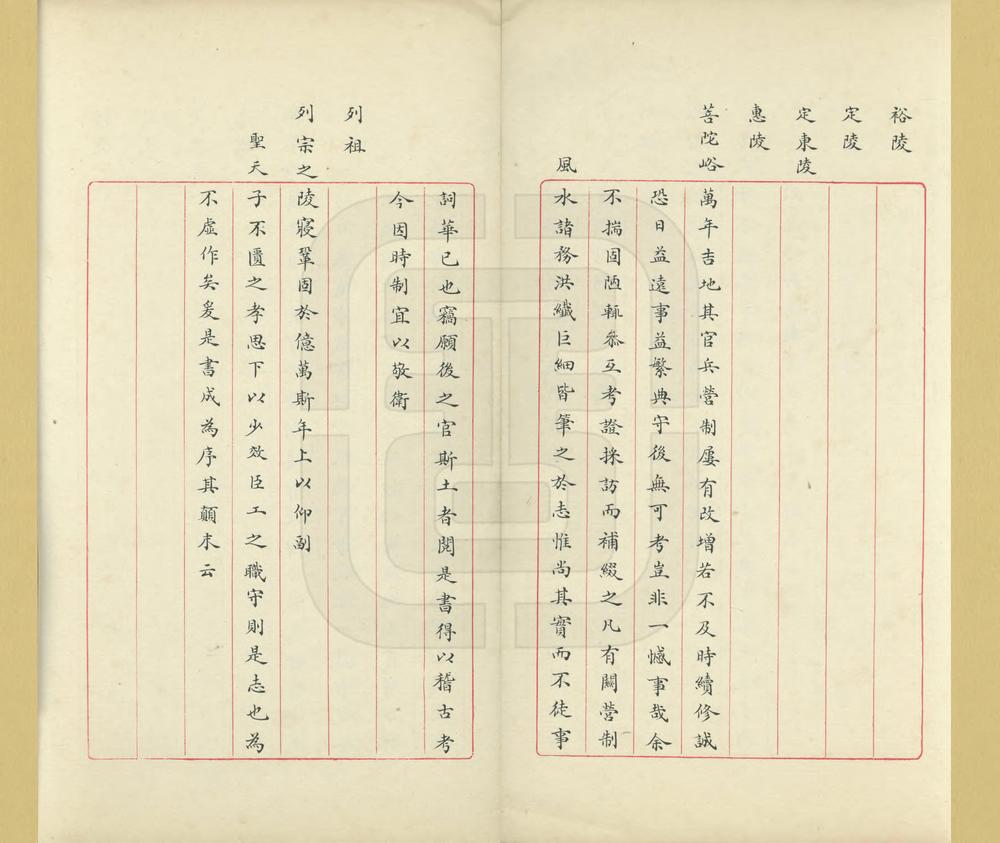 裕陵
定陵
定東陵
惠陵
菩陀峪萬年吉地其官兵營制屢有改增若不及時續修誠
恐日益遠事益繁典守後無可考豈非一憾事哉余
不揣固陋輒叅互考證採訪而補綴之凡有關營制
風水諸務洪纖巨細皆筆之於志惟尚其實而不徒事
詞華已也竊願後之官斯土者閱是書得以稽古考
今因時制宜以敬衛
列祖
列宗之陵寢鞏固於億萬斯年上以仰副
聖天子不匱之孝思下以少效臣工之職守則是志也為
不虛作矣爰是書成為序其顛末云